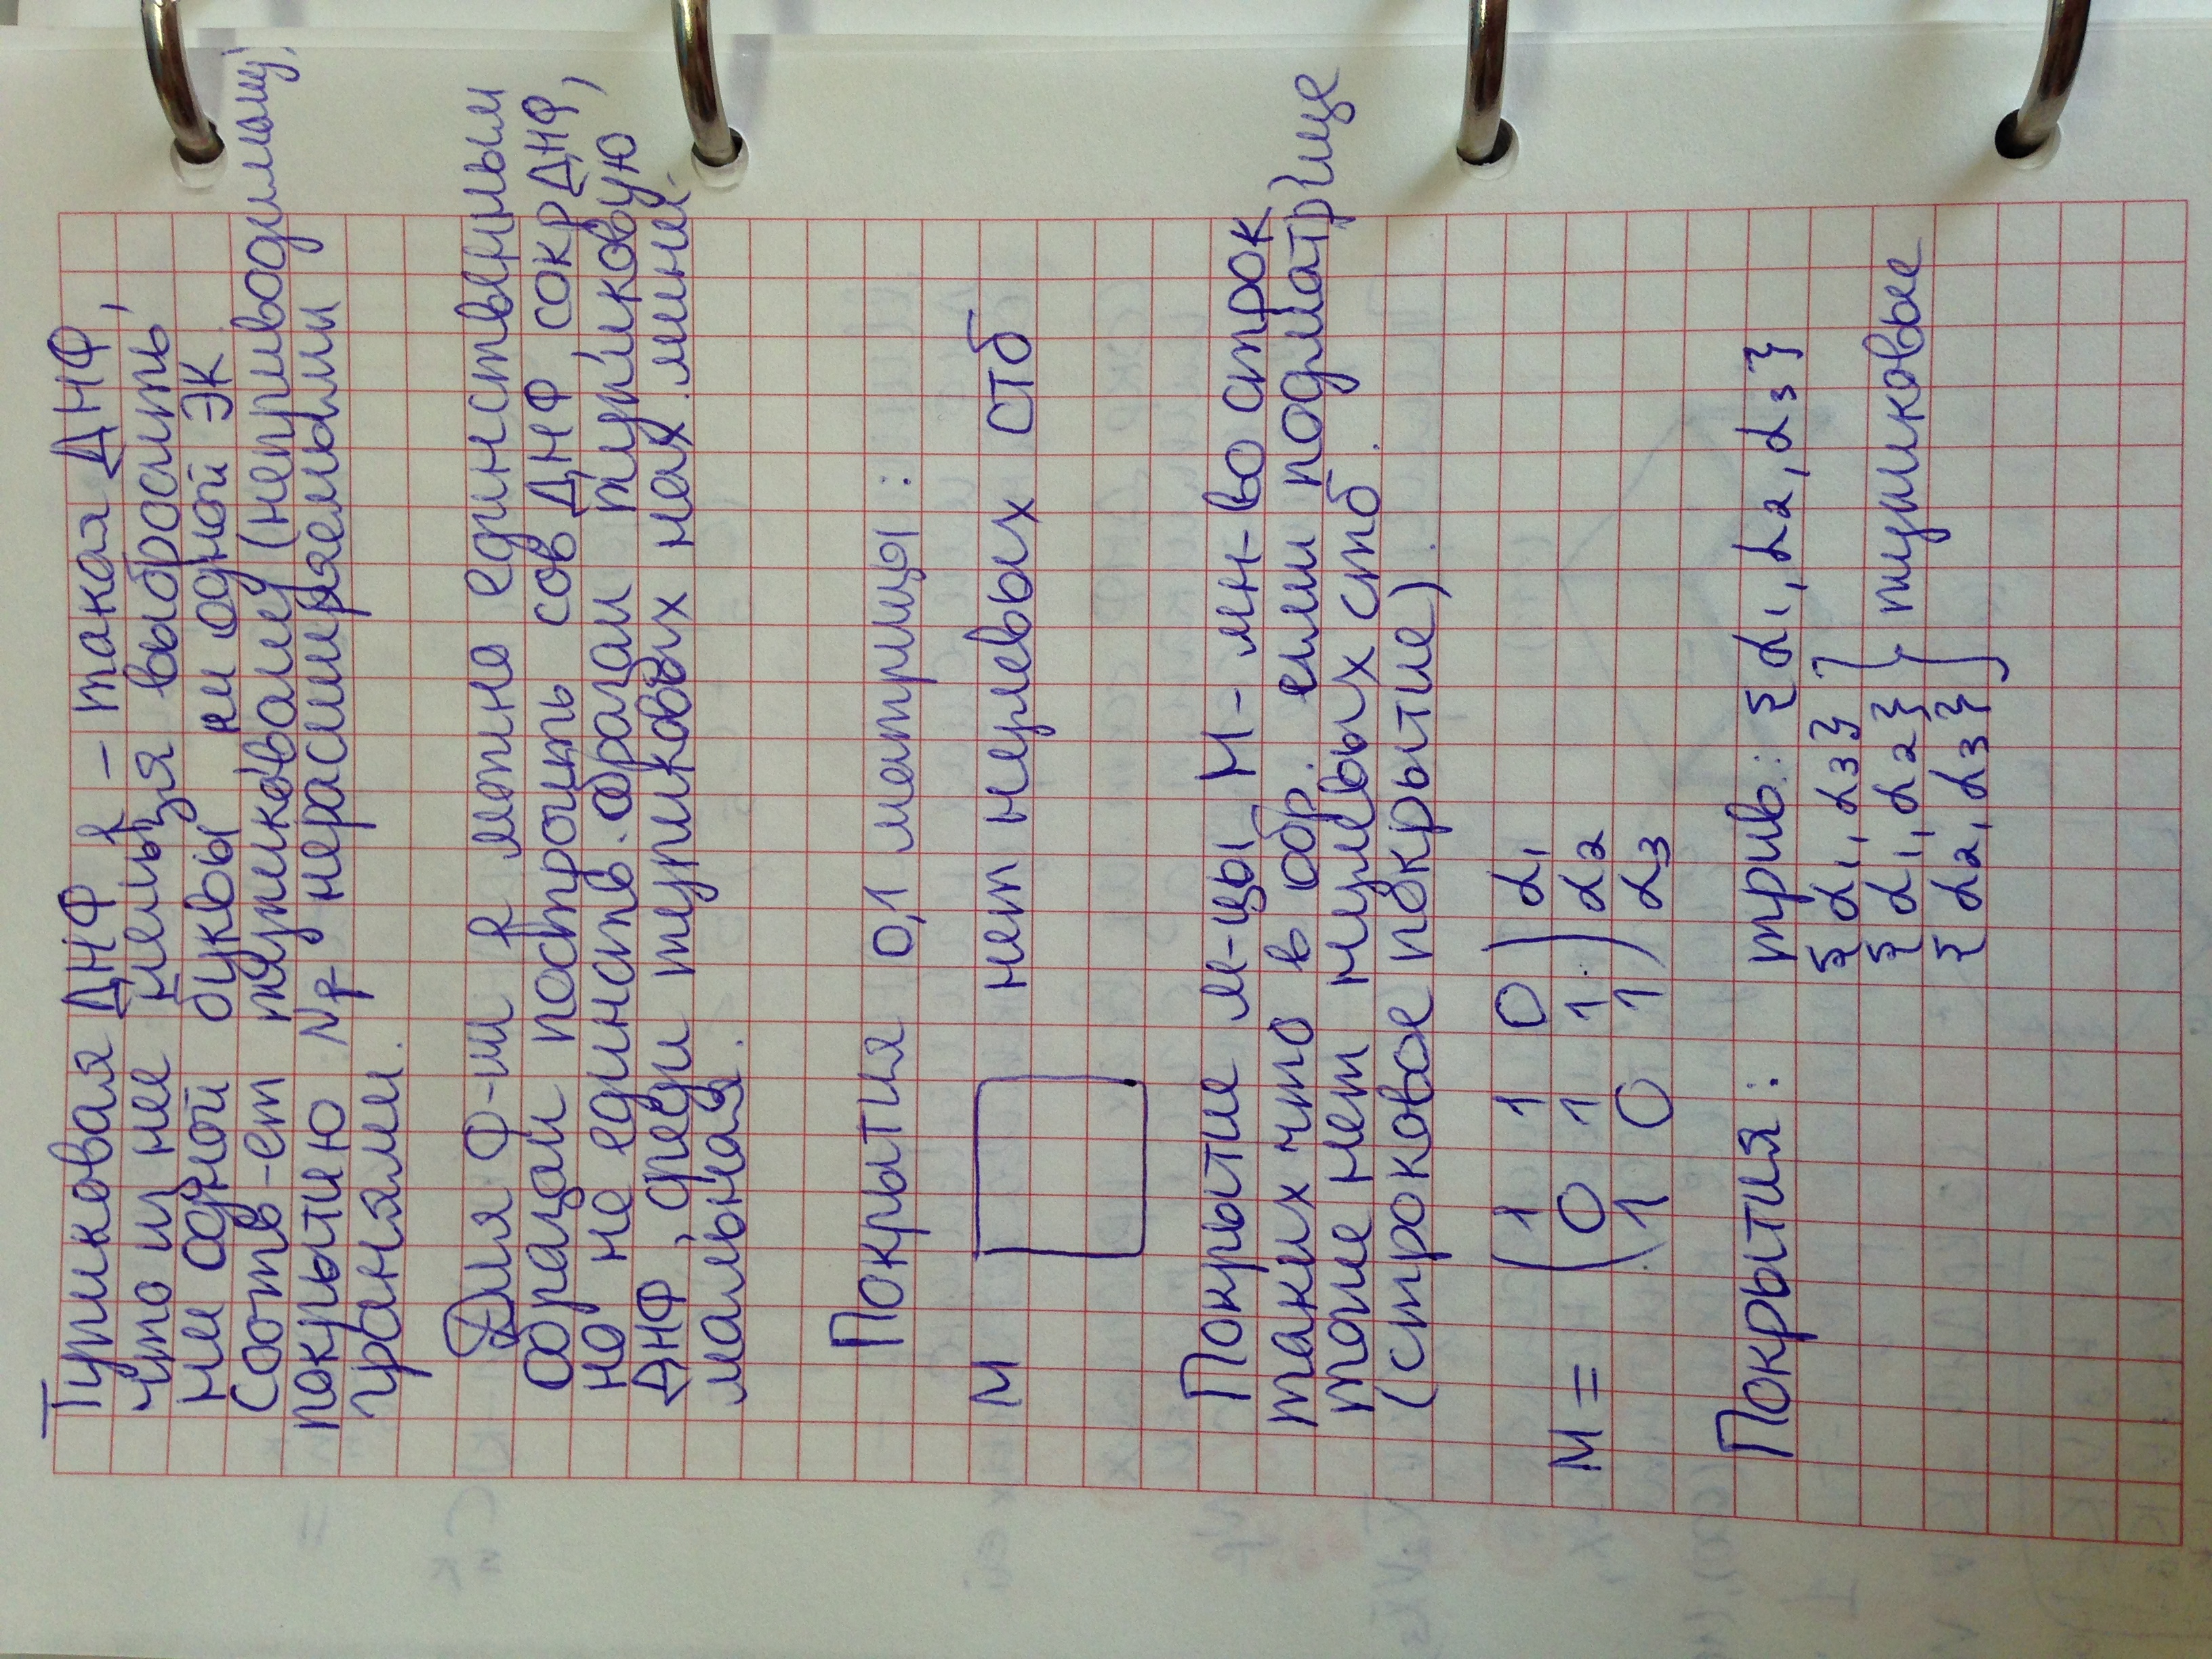 Тупиковая ДНФ f – такая ДНФ,
что из нее нельзя выбросить
ни одной буквы и ни одной ЭК
Соотв-ет тупиковому (неприводимому)
покрытию N_f нерасширяемыми
гранями.
Для ф-ии f можно единственным
образом построить сов ДНФ, сокр ДНФ,
но не единств. образом тупиковую
ДНФ, среди тупиковых нах. мини-
мальная.
Покрытия 0,1 матрицы:
M нет нулевых стб
Покрытие м-цы M - мн-во строк
таких что в обр. ими подматрице
тоже нет нулевых стб.
(строковое покрытие).
M = ( 1 1 0 ) α1
( 0 1 1 ) α2
( 1 0 1 ) α3
Покрытия: трив.: {α1, α2, α3}
{α1, α3}
{α1, α2} } тупиковые
{α2, α3}